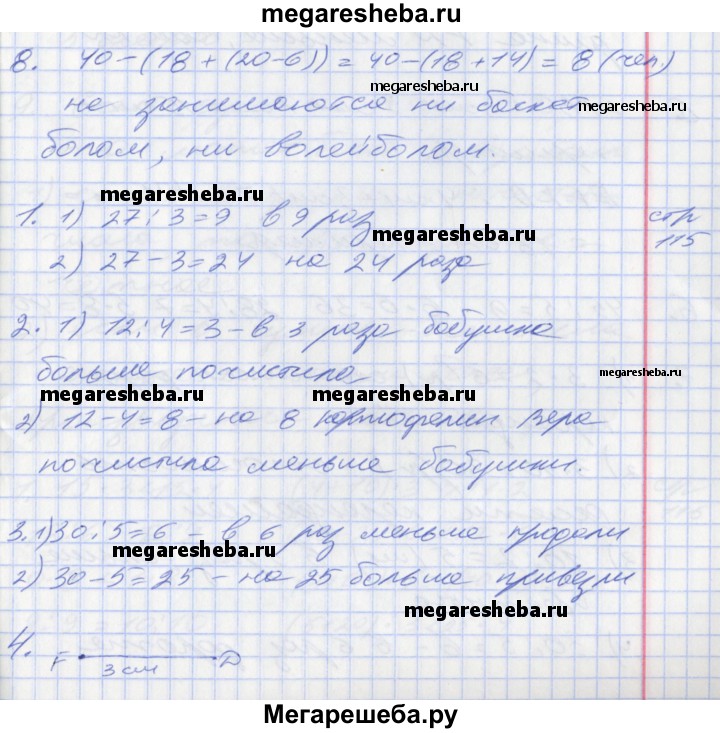 megaresheba.ru
8. 40-(18+(20-6))=40-(18+14)=8 (чел.)
megaresheba.ru
не занимаются ни баскет
megaresheba.ru
болом, ни волейболом.
megaresheba.ru
1. 1) 27:3=9 в 9 раз
стр
115
megaresheba.ru
2) 27-3=24 на 24 раза
2. 1) 12:4=3-в 3 раза бабушка
больше почистила
megaresheba.ru
megaresheba.ru
megaresheba.ru
2) 12-4=8-на 8 картофелин Вера
почистила меньше бабушки.
3. 1) 30:5=6 - в 6 раз меньше продали
megaresheba.ru
2) 30-5=25-на 25 больше привезли
megaresheba.ru
4. F 3 см D
Мегарешеба.ру